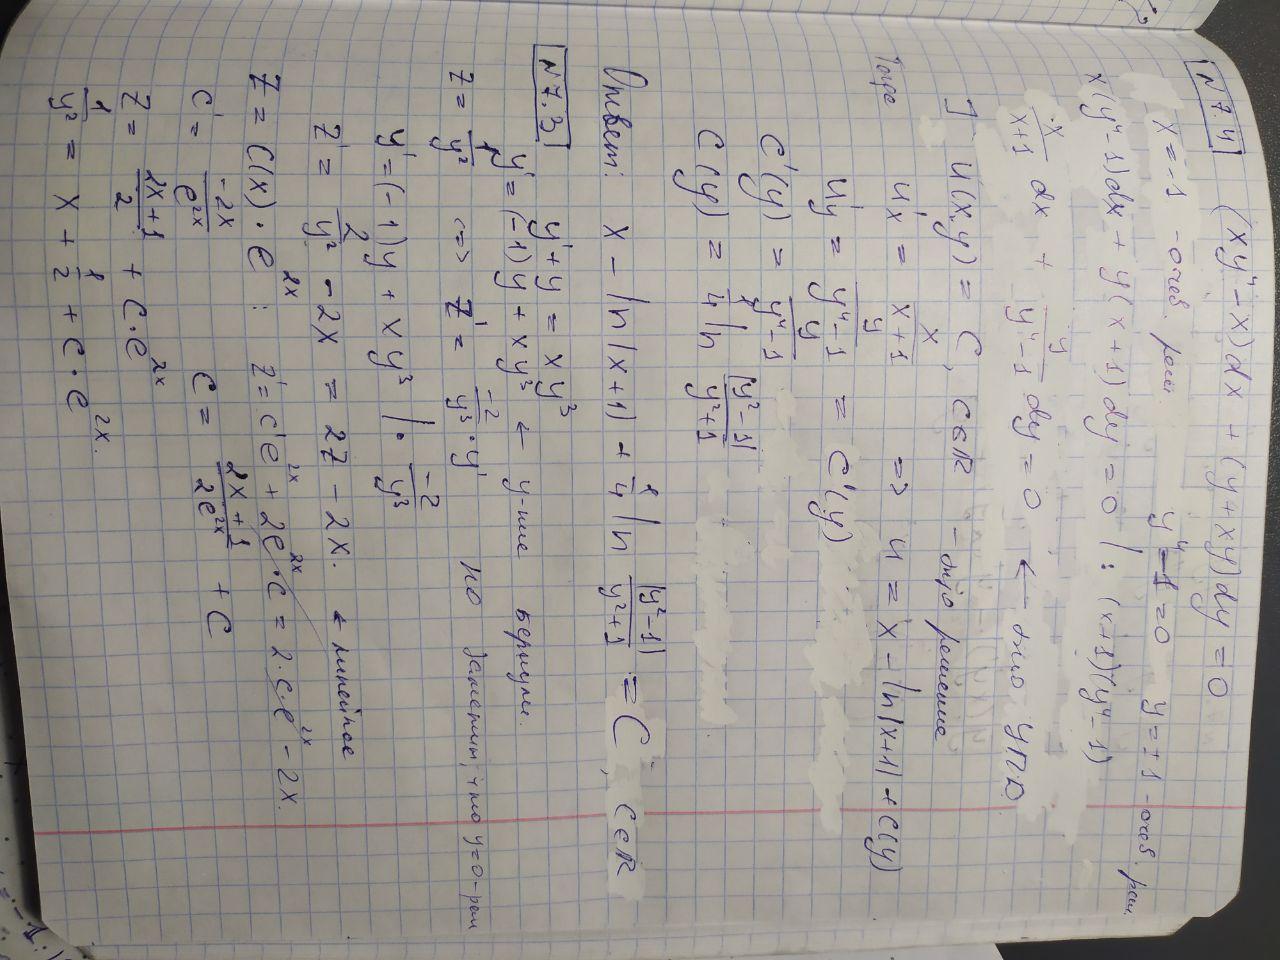 N 7.4 (xy⁴-x)dx + (y+xy)dy = 0
x = -1 - очев. реш. y⁴-1=0 y = ±1 - очев. реш.
x(y⁴-1)dx + y(x+1)dy = 0 | : (x+1)(y⁴-1)
x/(x+1) dx + y/(y⁴-1) dy = 0 ← это УПД
] u(x,y) = C, C∈ℝ - это решение
Тогда u'x = x/(x+1) => u = x - ln|x+1| + c(y)
u'y = y/(y⁴-1) = c'(y)
c'(y) = y/(y⁴-1)
c(y) = 1/4 ln |y²-1|/(y²+1)
Ответ: x - ln|x+1| + 1/4 ln |y²-1|/(y²+1) = C, C∈ℝ
N 7.3 y'+y = xy³
y' = (-1)y + xy³ ← у-ние Бернули.
z = 1/y² <=> z' = -2/y³ · y' но заметим, что y=0 - реш
y' = (-1)y + xy³ | · -2/y³
z' = 2/y² - 2x = 2z - 2x. ← линейное
z = C(x) · e^2x : z' = c'e^2x + 2e^2x · c = 2·c·e^2x - 2x.
c' = -2x/e^2x c = (2x+1)/2e^2x + C
z = (2x+1)/2 + c·e^2x
1/y² = x + 1/2 + c·e^2x.